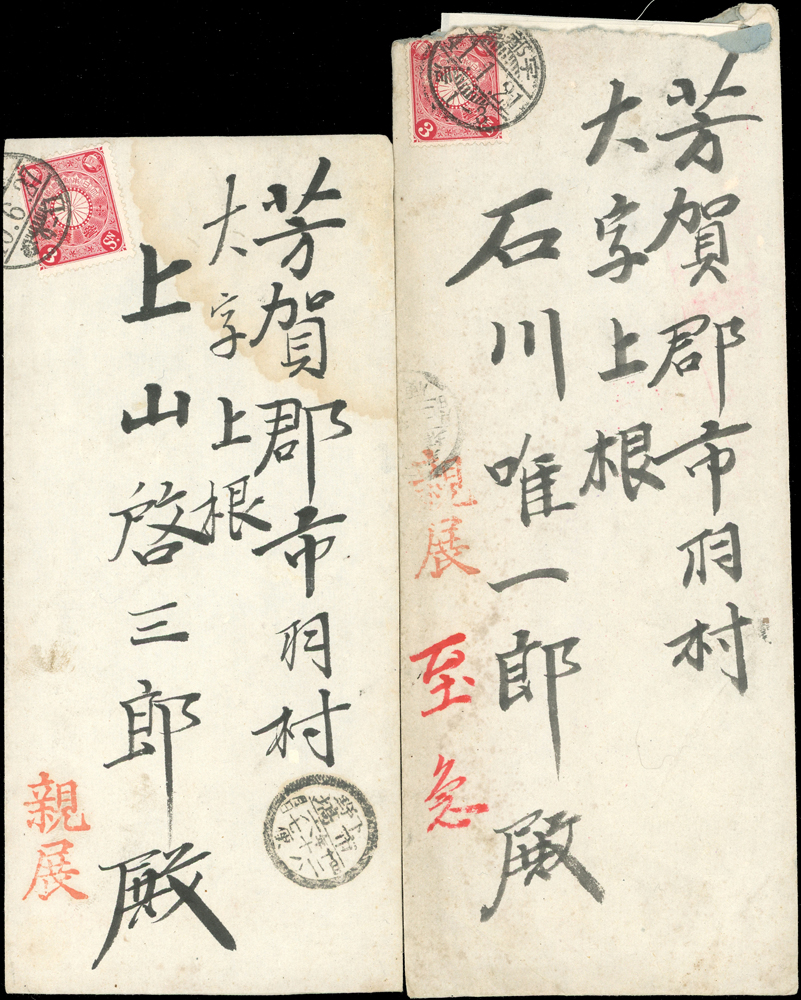 芳賀郡市羽村
大字上根
上山啓三郎殿
親展
3
芳賀郡市羽村
大字上根
石川唯一郎殿
親展
至急
3